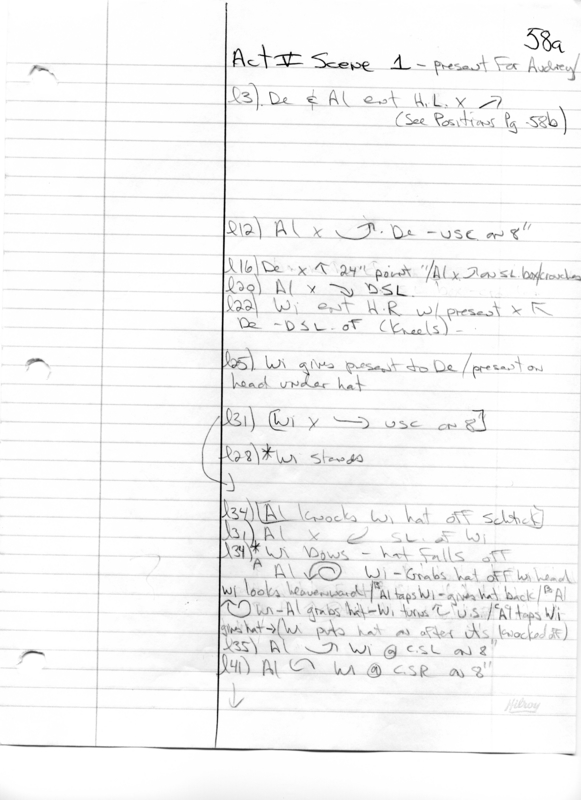 58a
Act V Scene 1 - present For Audrey/
l3) De & Al ent H.L. x ↗
(See Positions Pg. 58b)
l12) Al x ⤴ De - USC on 8"
l16) De x ↑ 24" point "/Al x ↗ on SL box/crouches
l20) Al x ↘ DSL
l22) Wi ent H.R w/ present x ↖
De - DSL of (Kneels) -
l25) Wi gives present to De/present on
head under hat
l31) [Wi x → USC on 8"]
l28) * Wi stands
l34) [Al knocks Wi hat off Schtick]
l31) Al x ↙ SL. of Wi
l34) * Wi Bows - hat falls off
A Al Wi - Grabs hat off Wi head
Wi looks heavenward / Al taps Wi - gives hat back / Al
Wi - Al grabs hat - Wi turns US / Al taps Wi
gives hat → (Wi puts hat on after it's knocked off)
l35) Al ⤴ Wi @ C.SL on 8"
l41) Al Wi @ CSR on 8"
↓
Hilroy